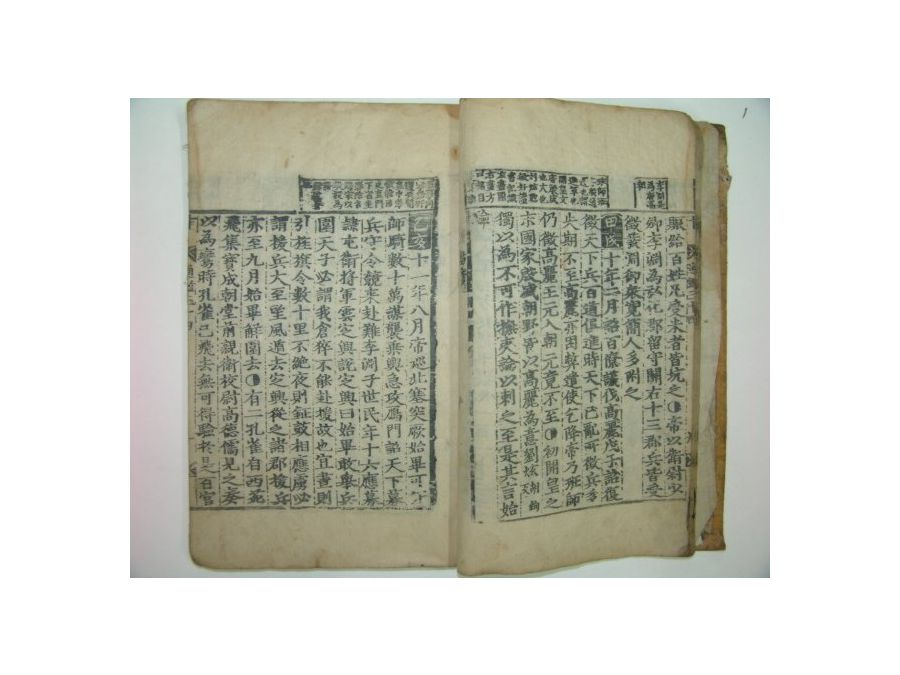 賑給百姓凡受米者皆坑之◐帝以衛尉少
卿李淵為弘化郡留守關右十三郡兵皆受
徵發淵御衆寬簡人多附之
甲戌十年二月詔百僚議伐高麗戊子詔復
徵天下兵百道俱進時天下已亂所徵兵多
失期不至高麗亦困弊遣使乞降帝乃班師
仍徵高麗王元入朝元竟不至◐初開皇之
末國家殷盛朝野皆以高麗為意劉炫
獨以為不可作撫夷論以刺之至是其言始
驗
乙亥十一年八月帝巡北塞突厥始畢可汗
師騎數十萬謀襲乘輿急攻鴈門詔天下募
兵守令競來赴難李淵子世民年十六應募
隷屯衛將軍雲定興說定興曰始畢敢舉兵
圍天子必謂我倉猝不能赴援故也宜晝則
引旌旗令數十里不絶夜則鉦鼓相應虜必
謂援兵大至望風遁去定興從之諸郡援兵
亦至九月始畢解圍去◐有二孔雀自西苑
飛集寶成朝堂前親衛校尉高德儒見之奏
以為鸞時孔雀已飛去無可得驗於是百官